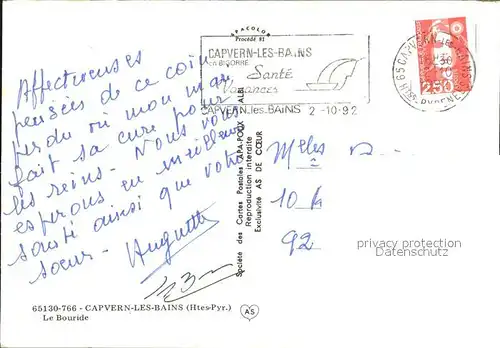 APACOLOR
Procédé 81
CAPVERN-LES-BAINS
EN BIGORRE
Santé
Vacances
CAPVERN-les-BAINS 2-10-92
65 CAPVERN-les-BAINS
2,50
Affectueuses
pensées de ce coin
perdu où mon mari
fait sa cure pour
les reins. Nous vous
espérons en meilleure
santé ainsi que votre
soeur. Huguette
Société des Cartes Postales APA-POUX ALBI
Reproduction interdite
Exclusivité AS DE CŒUR
Melles
10
92
privacy protection
Datenschutz
65130-766 - CAPVERN-LES-BAINS (Htes-Pyr.)
Le Bouride
AS